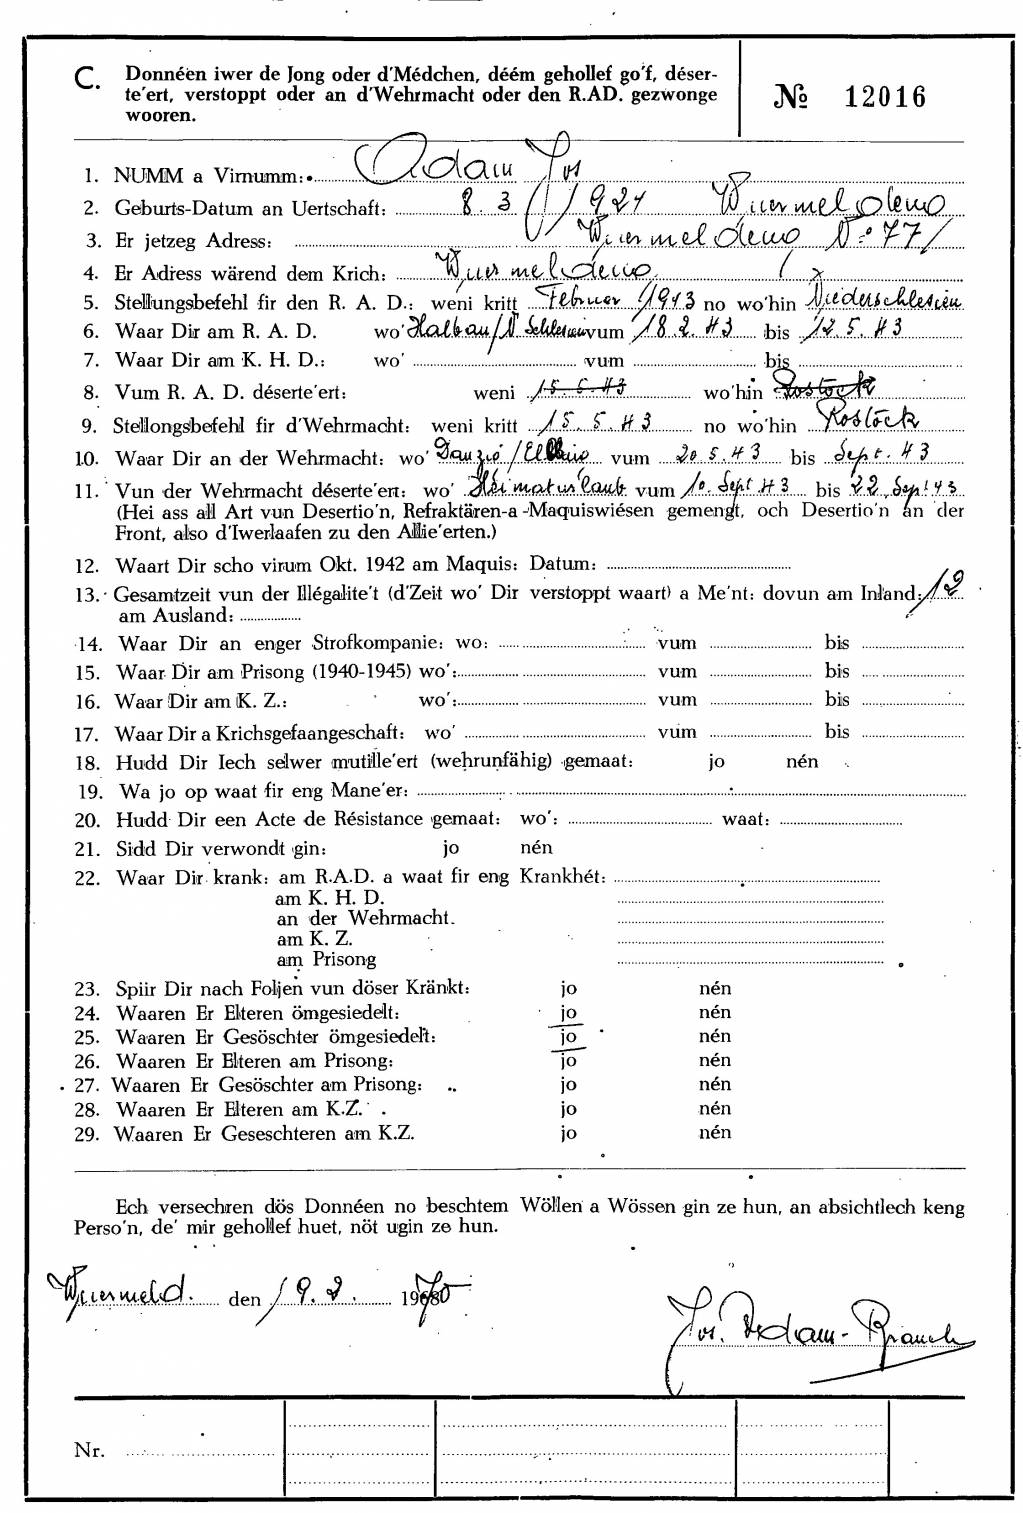 C. Donnéen iwer de Jong oder d'Médchen, déém gehollef go'f, déser-
te'ert, verstoppt oder an d'Wehrmacht oder den R.AD. gezwonge
wooren.
№ 12016
1. NUMM a Virnumm: Adam Jos
2. Geburts-Datum an Uertschaft: 8. 3 1924
3. Er jetzeg Adress: No 77
4. Er Adress wärend dem Krich:
5. Stellungsbefehl fir den R. A. D.: weni kritt Februar 1943 no wo'hin Niederschlesien
6. Waar Dir am R. A. D. wo' Halbau/N Schlesien vum 18.2.43 bis 12.5.43
7. Waar Dir am K. H. D.: wo' vum bis
8. Vum R. A. D. déserte'ert: weni 15.5.43 wo'hin Rostock
9. Stellongsbefehl fir d'Wehrmacht: weni kritt 15.5.43 no wo'hin Rostock
10. Waar Dir an der Wehrmacht: wo' Danzig/ vum 20.5.43 bis Sept. 43
11. Vun der Wehrmacht déserte'ert: wo' Heimaturlaub vum 10. Sept 43 bis 22 Sept 43
(Hei ass all Art vun Desertio'n, Refraktären-a-Maquiswiésen gemengt, och Desertio'n an der
Front, also d'Iwerlaafen zu den Allie'erten.)
12. Waart Dir scho virum Okt. 1942 am Maquis: Datum:
13. Gesamtzeit vun der Illégalite't (d'Zeit wo' Dir verstoppt waart) a Me'nt: dovun am Inland: 12
am Ausland:
14. Waar Dir an enger Strofkompanie: wo: vum bis
15. Waar Dir am Prisong (1940-1945) wo': vum bis
16. Waar Dir am K. Z.: wo': vum bis
17. Waar Dir a Krichsgefaangeschaft: wo' vum bis
18. Hudd Dir Iech selwer mutille'ert (wehrunfähig) gemaat: jo nén
19. Wa jo op waat fir eng Mane'er:
20. Hudd Dir een Acte de Résistance gemaat: wo': waat:
21. Sidd Dir verwondt gin: jo nén
22. Waar Dir krank: am R.A.D. a waat fir eng Krankhét:
am K. H. D.
an der Wehrmacht.
am K. Z.
am Prisong
23. Spiir Dir nach Foljen vun döser Kränkt: jo nén
24. Waaren Er Elteren ömgesiedelt: jo nén
25. Waaren Er Gesöschter ömgesiedelt: jo nén
26. Waaren Er Elteren am Prisong: jo nén
27. Waaren Er Gesöschter am Prisong: jo nén
28. Waaren Er Elteren am K.Z. jo nén
29. Waaren Er Geseschteren am K.Z. jo nén
Ech versechren dös Donnéen no beschtem Wöllen a Wössen gin ze hun, an absichtlech keng
Perso'n, de' mir gehollef huet, nöt ugin ze hun.
Wuermeld. den 19.2. 1970
Jos. Adam-Brauch
Nr.